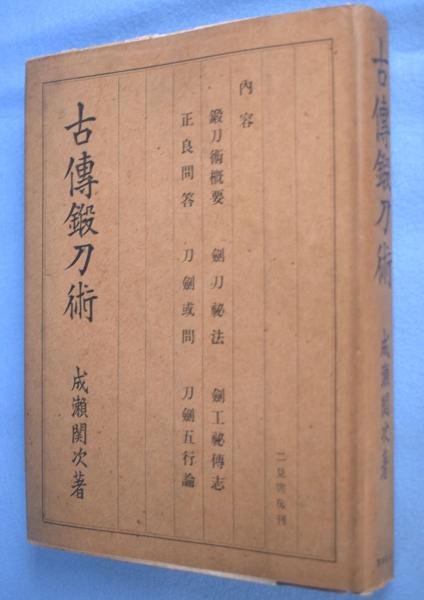 内容
鍛刀術概要　劍刀祕法　劍工祕傳志
正良問答　刀劍或問　刀劍五行論
古傳鍛刀術
成瀨関次著
二見書房刊
古傳鍛刀術
成瀨関次著